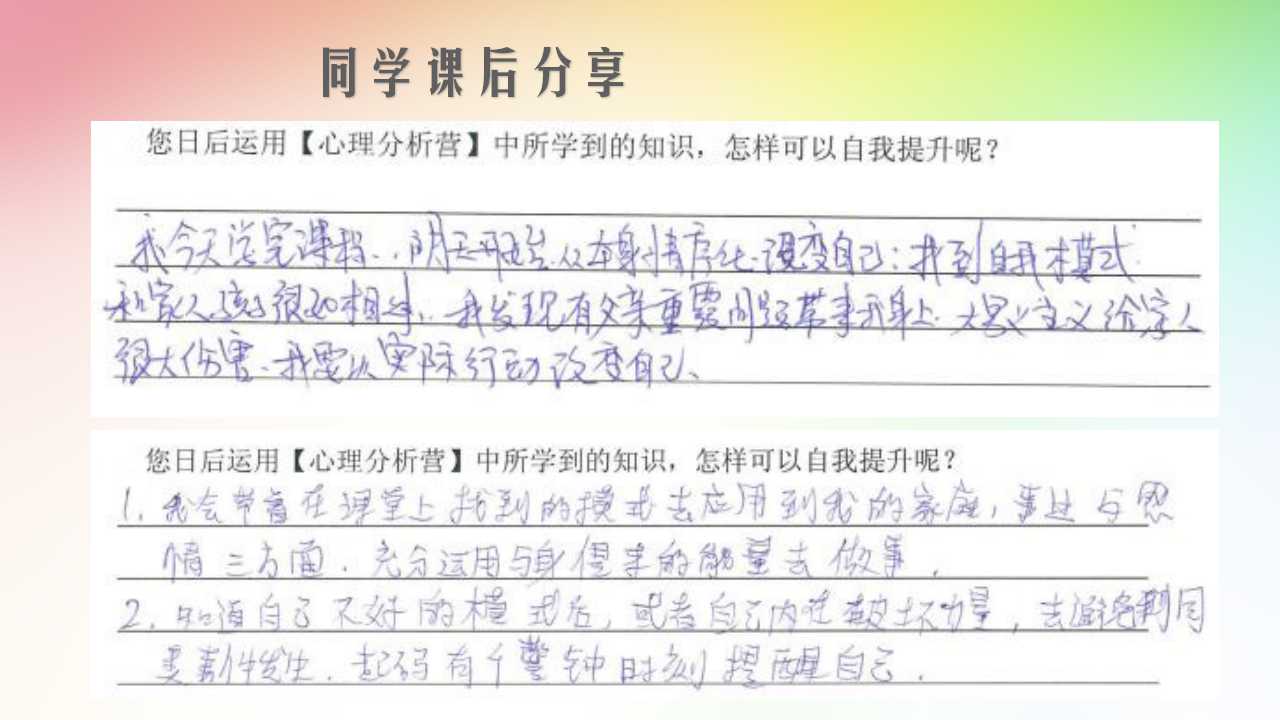 同学课后分享
您日后运用【心理分析营】中所学到的知识，怎样可以自我提升呢？
我今天学完课程、明天开始从本身情序化、改变自己：找到自我模式
和家人孩子很好相处、我发现有父亲重要问题带来示身上、大男义主义给家人
很大伤害、我要以实际行动改变自己、
您日后运用【心理分析营】中所学到的知识，怎样可以自我提升呢？
1. 我会带着在课堂上找到的模式去应用到我的家庭，事业与感
情三方面．充分运用与身得来的能量去做事．
2. 知道自己不好的模式后，或者自己内在破坏力量，去避免到同
类事件发生．起码有个警钟时刻提醒自己．